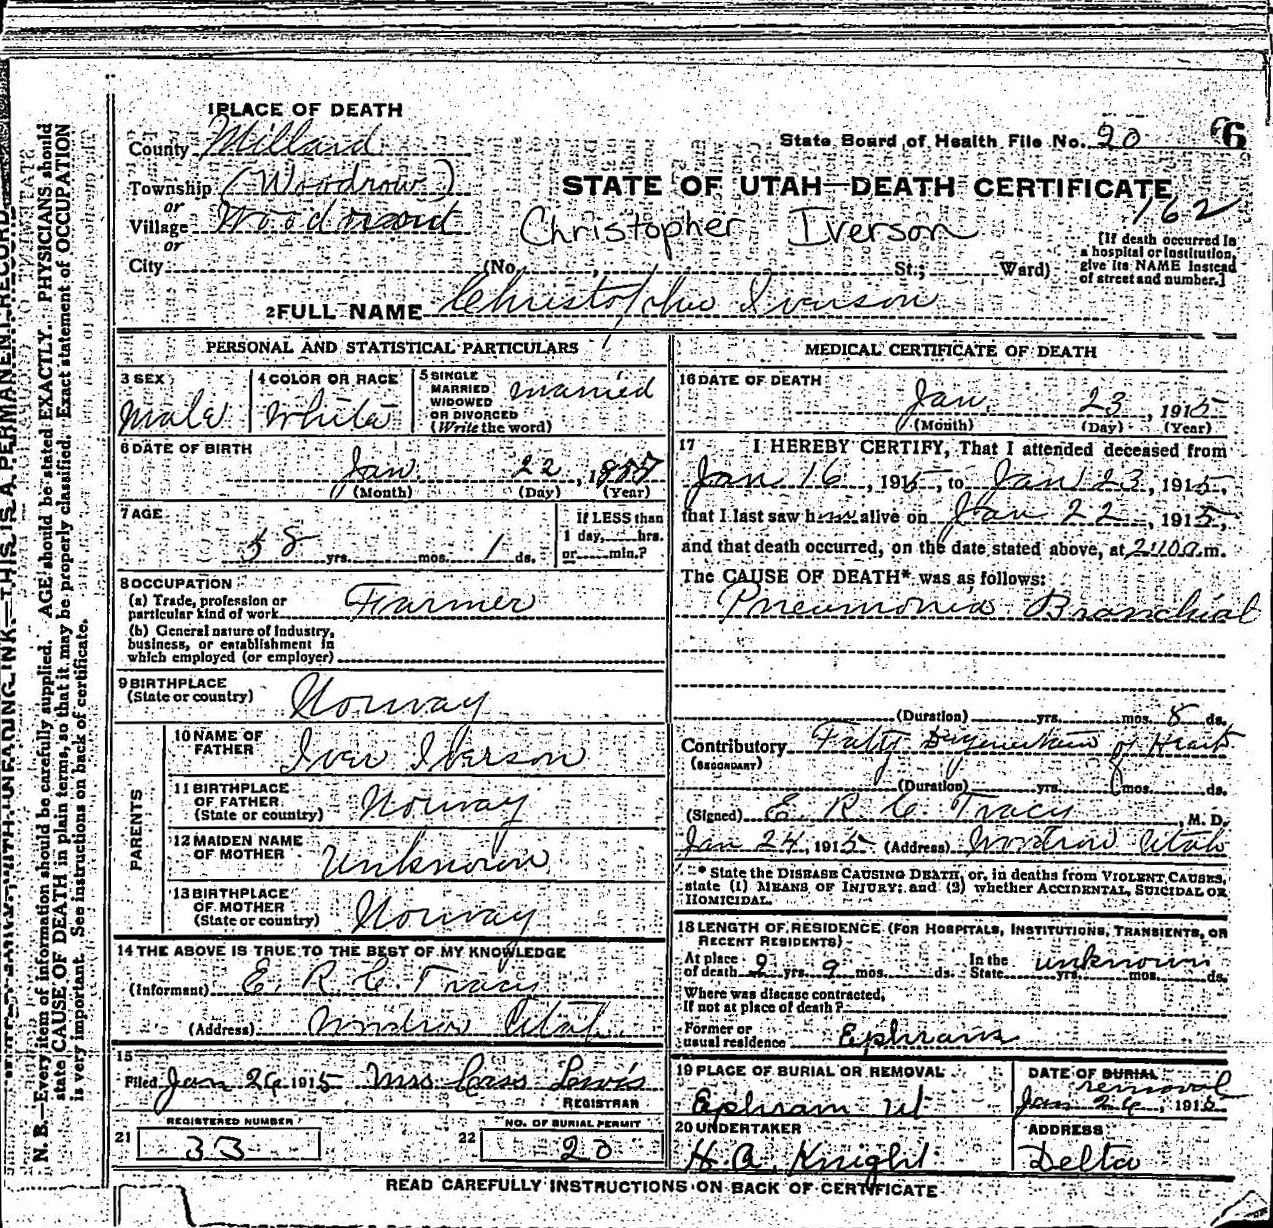 1 PLACE OF DEATH
County Millard
State Board of Health File No. 20 66
Township (Woodrow)
or
STATE OF UTAH—DEATH CERTIFICATE
162
Village
or
Christopher Iverson
City (No. , St.; Ward)
[If death occurred in
a hospital or institution,
give its NAME instead
of street and number.]
2 FULL NAME Christopher Iverson
PERSONAL AND STATISTICAL PARTICULARS
3 SEX
Male
4 COLOR OR RACE
White
5 SINGLE
MARRIED
WIDOWED
OR DIVORCED
(Write the word)
married
6 DATE OF BIRTH
Jan 22, 1857
(Month) (Day) (Year)
7 AGE
58 yrs. mos. 1 ds.
If LESS than
1 day, hrs.
or min.?
8 OCCUPATION
(a) Trade, profession or
particular kind of work Farmer
(b) General nature of Industry,
business, or establishment in
which employed (or employer)
9 BIRTHPLACE
(State or country) Norway
PARENTS
10 NAME OF
FATHER Iver Iverson
11 BIRTHPLACE
OF FATHER
(State or country) Norway
12 MAIDEN NAME
OF MOTHER Unknown
13 BIRTHPLACE
OF MOTHER
(State or country) Norway
14 THE ABOVE IS TRUE TO THE BEST OF MY KNOWLEDGE
(Informant) E. R. C. Tracy
(Address) Woodrow Utah
15
Filed Jan 26 1915 Mrs Cass Lewis
REGISTRAR
REGISTERED NUMBER
21 33
NO. OF BURIAL PERMIT
22 20
MEDICAL CERTIFICATE OF DEATH
16 DATE OF DEATH
Jan. 23, 1915
(Month) (Day) (Year)
17 I HEREBY CERTIFY, That I attended deceased from
Jan 16, 1915, to Jan 23, 1915,
that I last saw him alive on Jan 22, 1915,
and that death occurred, on the date stated above, at a.m.
The CAUSE OF DEATH* was as follows:
Pneumonia Bronchial
(Duration) yrs. mos. 8 ds.
Contributory Fatty Degeneration of Heart
(SECONDARY)
(Duration) yrs. mos. ds.
(Signed) E. R. C. Tracy, M. D.
Jan 24, 1915 (Address) Woodrow Utah
* State the DISEASE CAUSING DEATH, or, in deaths from VIOLENT CAUSES,
state (1) MEANS OF INJURY; and (2) whether ACCIDENTAL, SUICIDAL OR
HOMICIDAL.
18 LENGTH OF RESIDENCE (FOR HOSPITALS, INSTITUTIONS, TRANSIENTS, OR
RECENT RESIDENTS)
At place
of death 2 yrs. 9 mos. ds.
In the
State unknown yrs. mos. ds.
Where was disease contracted,
If not at place of death?
Former or
usual residence Ephraim
19 PLACE OF BURIAL OR REMOVAL
Ephram Ut
DATE OF BURIAL
removal
Jan 26, 1915
20 UNDERTAKER
H. A. Knight
ADDRESS
Delta
READ CAREFULLY INSTRUCTIONS ON BACK OF CERTIFICATE
WITH UNFADING INK—THIS IS A PERMANENT RECORD
N. B.—Every item of information should be carefully supplied. AGE should be stated EXACTLY. PHYSICIANS should
state CAUSE OF DEATH in plain terms, so that it may be properly classified. Exact statement of OCCUPATION
is very important. See instructions on back of certificate.